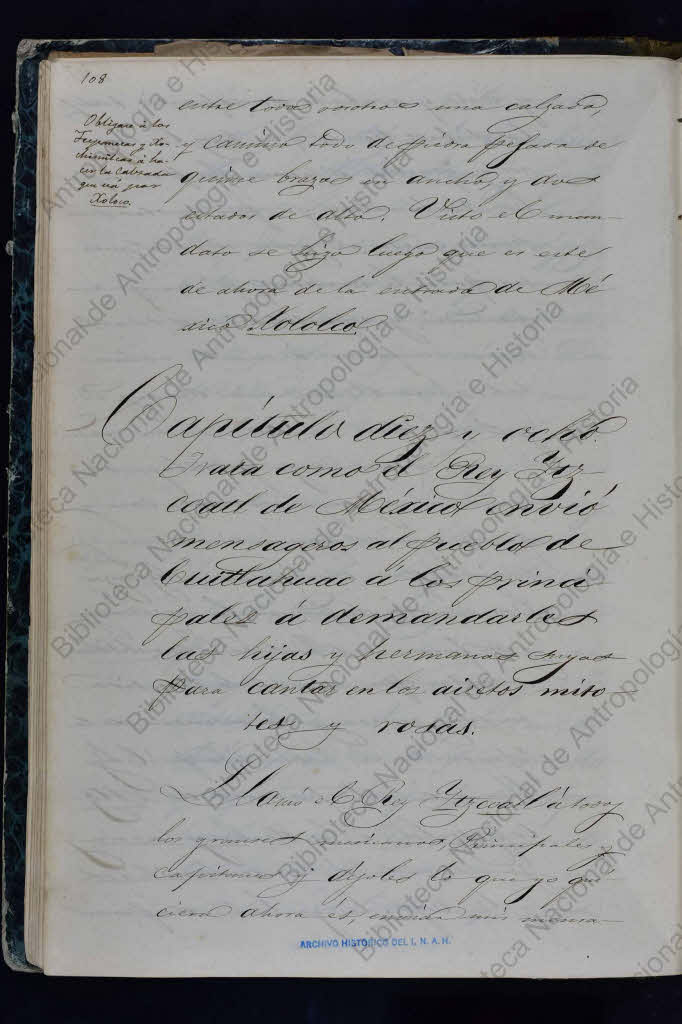 108
Obligase á los
Tezcucanos y Xo-
chimilcas á ha-
cer la Calzada
que vá por
Xoloco.
entre todos vosotros una calzada,
y camino todo de piedra pesada de
quince brazas en ancho, y dos
estados de alto. Visto el man-
dato se hizo luego que es este
de ahora de la entrada de Mé
xico Xololco.
Capítulo diez y ocho.
Trata como el Rey Ytz-
coatl de México envió
mensageros al pueblo de
Cuitlahuac á los princi
pales á demandarles
las hijas y hermanas suyas
para cantar en los airetos mito-
tes y rosas.
Llamó el Rey Ytzcoatl á todos
los grandes mexicanos, Principales y
Capitanes y díjoles lo que yo qui
ciera ahora és, enviar mis mensa-
ARCHIVO HISTORICO DEL I. N. A. H.
Biblioteca Nacional de Antropología e Historia